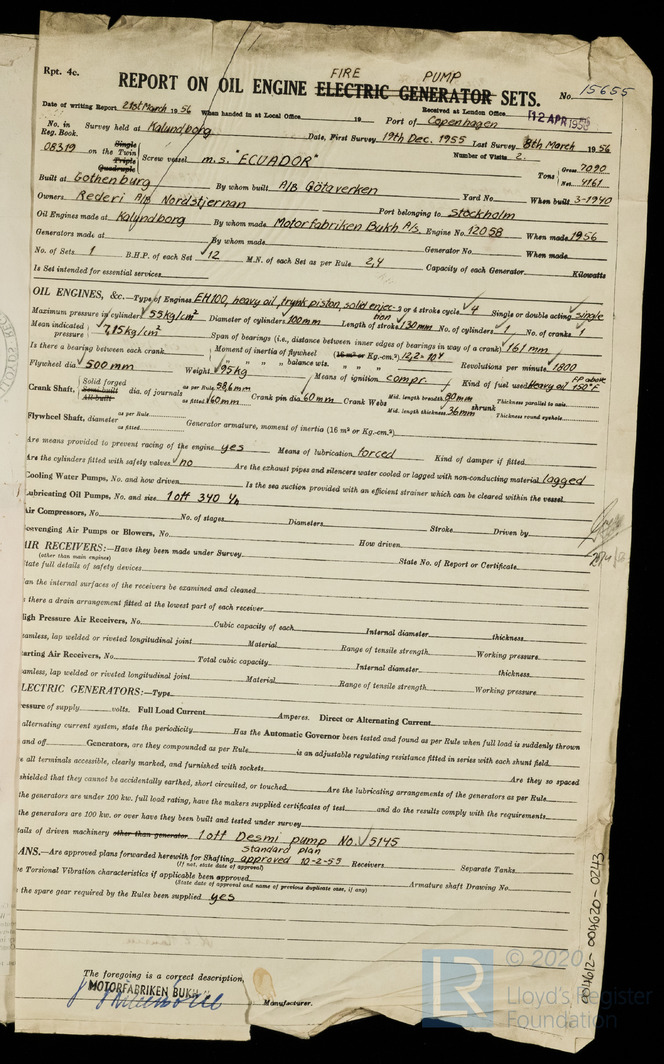 Rpt. 4c.
FIRE PUMP
REPORT ON OIL ENGINE ELECTRIC GENERATOR SETS.
No. 15655
Received at London Office
12 APR 1956
Date of writing Report 21st March 1956 When handed in at Local Office 19 Port of Copenhagen
No. in Reg. Book. Survey held at Kalundborg Date, First Survey 19th Dec. 1955 Last Survey 8th March 1956
Number of Visits 2.
08319 on the Single Twin Triple Quadruple Screw vessel m.s. "ECUADOR" Tons Gross 7090 Net 4161
Built at Gothenburg By whom built A/B Götaverken Yard No. When built 3-1940
Owners Rederi A/B Nordstjernan Port belonging to Stockholm
Oil Engines made at Kalyndborg By whom made Motorfabriken Bukh A/s. Engine No. 12058 When made 1956
Generators made at By whom made Generator No. When made
No. of Sets 1 B.H.P. of each Set 12 M.N. of each Set as per Rule 2,4 Capacity of each Generator Kilowatts
Is Set intended for essential services
OIL ENGINES, &c.—Type of Engines EH100, heavy oil, trynk piston, solid enjection 2 or 4 stroke cycle 4 Single or double acting single
Maximum pressure in cylinders 55 kg/cm² Diameter of cylinders 100 mm Length of stroke 130 mm No. of cylinders 1 No. of cranks 1
Mean indicated pressure 7,15 kg/cm² Span of bearings (i.e., distance between inner edges of bearings in way of a crank) 161 mm
Is there a bearing between each crank Moment of inertia of flywheel (16 m² or Kg.-cm.²) 12,2 = 10⁴ Revolutions per minute 1800
Flywheel dia. 500 mm Weight 95 kg " " " balance wts. " " " Means of ignition compr. Kind of fuel used Heavy oil FP above 150°F
Crank Shaft, Solid forged Semi built All built dia. of journals as per Rule 58,6 mm as fitted 60 mm Crank pin dia. 60 mm Crank Webs Mid. length breadth 90 mm Mid. length thickness 36 mm shrunk Thickness parallel to axis Thickness round eyehole
Flywheel Shaft, diameter as per Rule as fitted Generator armature, moment of inertia (16 m² or Kg.-cm.²)
Are means provided to prevent racing of the engine yes Means of lubrication forced Kind of damper if fitted
Are the cylinders fitted with safety valves no Are the exhaust pipes and silencers water cooled or lagged with non-conducting material lagged
Cooling Water Pumps, No. and how driven Is the sea suction provided with an efficient strainer which can be cleared within the vessel
Lubricating Oil Pumps, No. and size 1 off 340 l/h
Air Compressors, No. No. of stages Diameters Stroke Driven by
Scavenging Air Pumps or Blowers, No. How driven
AIR RECEIVERS:—Have they been made under Survey State No. of Report or Certificate
(other than main engines)
State full details of safety devices
an the internal surfaces of the receivers be examined and cleaned
there a drain arrangement fitted at the lowest part of each receiver
High Pressure Air Receivers, No. Cubic capacity of each Internal diameter thickness
eamless, lap welded or riveted longitudinal joint Material Range of tensile strength Working pressure
tarting Air Receivers, No. Total cubic capacity Internal diameter thickness
eamless, lap welded or riveted longitudinal joint Material Range of tensile strength Working pressure
LECTRIC GENERATORS:—Type
ressure of supply volts. Full Load Current Amperes. Direct or Alternating Current
alternating current system, state the periodicity Has the Automatic Governor been tested and found as per Rule when full load is suddenly thrown
and off Generators, are they compounded as per Rule is an adjustable regulating resistance fitted in series with each shunt field
e all terminals accessible, clearly marked, and furnished with sockets Are they so spaced
shielded that they cannot be accidentally earthed, short circuited, or touched Are the lubricating arrangements of the generators as per Rule
the generators are under 100 kw. full load rating, have the makers supplied certificates of test and do the results comply with the requirements
the generators are 100 kw. or over have they been built and tested under survey
tails of driven machinery other than generator 1 off Desmi pump No. 5145
standard plan
ANS.—Are approved plans forwarded herewith for Shafting approved 10-2-55 Receivers Separate Tanks
(If not, state date of approval)
e Torsional Vibration characteristics if applicable been approved Armature shaft Drawing No.
(State date of approval and name of previous duplicate case, if any)
the spare gear required by the Rules been supplied yes
The foregoing is a correct description,
MOTORFABRIKEN BUKH
Manufacturer.
004612-004620-0243
© 2020
LR
Lloyd's Register
Foundation